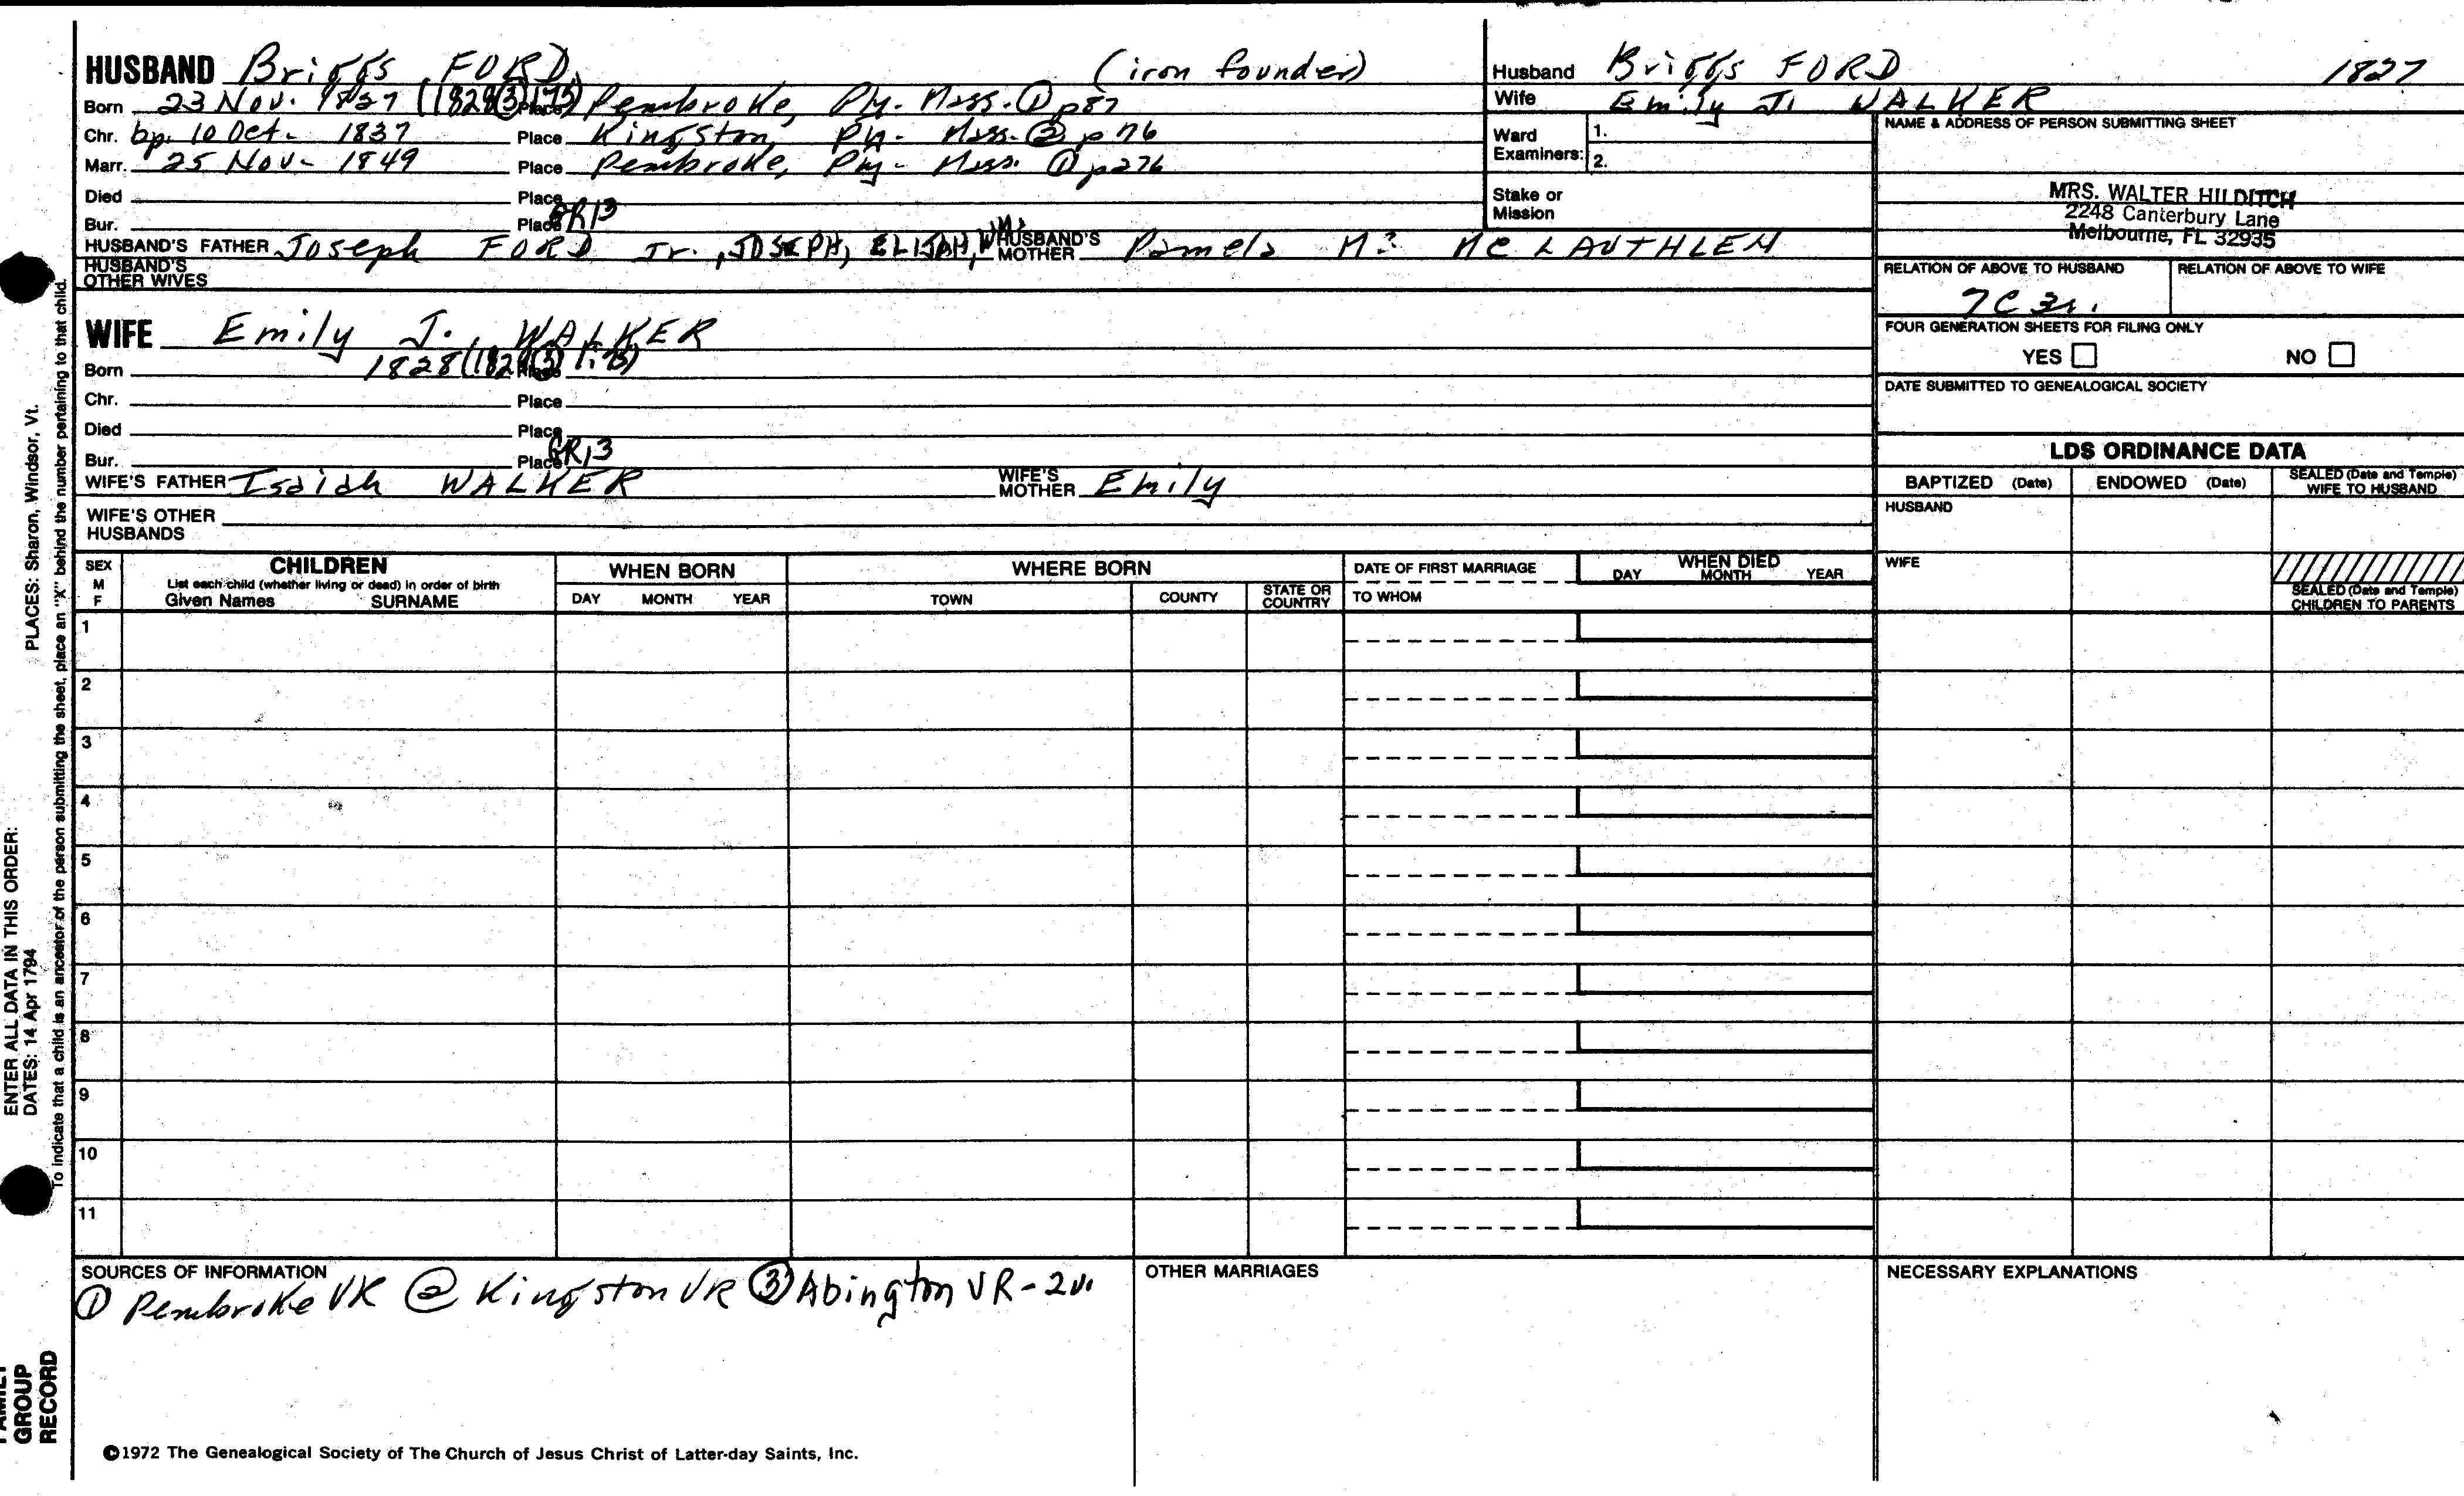 HUSBAND Briggs FORD (iron founder)
Born 23 Nov. 1827 (1828 ③ 1:75) Place Pembroke, Ply. Mass. ① p87
Chr. bp. 10 Oct. 1837 Place Kingston, Ply. Mass. ② p 76
Marr. 25 Nov. 1849 Place Pembroke, Ply. Mass. ① p276
Died Place
Bur. Place GR13
HUSBAND'S FATHER Joseph FORD Jr., JOSEPH, ELIJAH, Wm. HUSBAND'S MOTHER Pamela M. McLAUTHLEN
HUSBAND'S OTHER WIVES
WIFE Emily J. WALKER
Born 1828 ③ Place
Chr. Place
Died Place
Bur. Place GR13
WIFE'S FATHER Isaiah WALKER WIFE'S MOTHER Emily
WIFE'S OTHER HUSBANDS
Husband Briggs FORD 1827
Wife Emily J. WALKER
Ward Examiners: 1.
2.
Stake or Mission
NAME & ADDRESS OF PERSON SUBMITTING SHEET
MRS. WALTER HILDITCH
2248 Canterbury Lane
Melbourne, FL 32935
RELATION OF ABOVE TO HUSBAND RELATION OF ABOVE TO WIFE
7C 3r.
FOUR GENERATION SHEETS FOR FILING ONLY
YES NO
DATE SUBMITTED TO GENEALOGICAL SOCIETY
LDS ORDINANCE DATA
BAPTIZED (Date) ENDOWED (Date) SEALED (Date and Temple) WIFE TO HUSBAND
HUSBAND
WIFE
SEALED (Date and Temple) CHILDREN TO PARENTS
SEX M F
CHILDREN
List each child (whether living or dead) in order of birth
Given Names SURNAME
WHEN BORN
DAY MONTH YEAR
WHERE BORN
TOWN COUNTY STATE OR COUNTRY
DATE OF FIRST MARRIAGE
TO WHOM
WHEN DIED
DAY MONTH YEAR
1
2
3
4
5
6
7
8
9
10
11
SOURCES OF INFORMATION
① Pembroke VR ② Kingston VR ③ Abington VR - 2v.
OTHER MARRIAGES
NECESSARY EXPLANATIONS
©1972 The Genealogical Society of The Church of Jesus Christ of Latter-day Saints, Inc.
ENTER ALL DATA IN THIS ORDER:
DATES: 14 Apr 1794 PLACES: Sharon, Windsor, Vt.
To indicate that a child is an ancestor of the person submitting the sheet, place an "X" behind the number pertaining to that child.
FAMILY
GROUP
RECORD